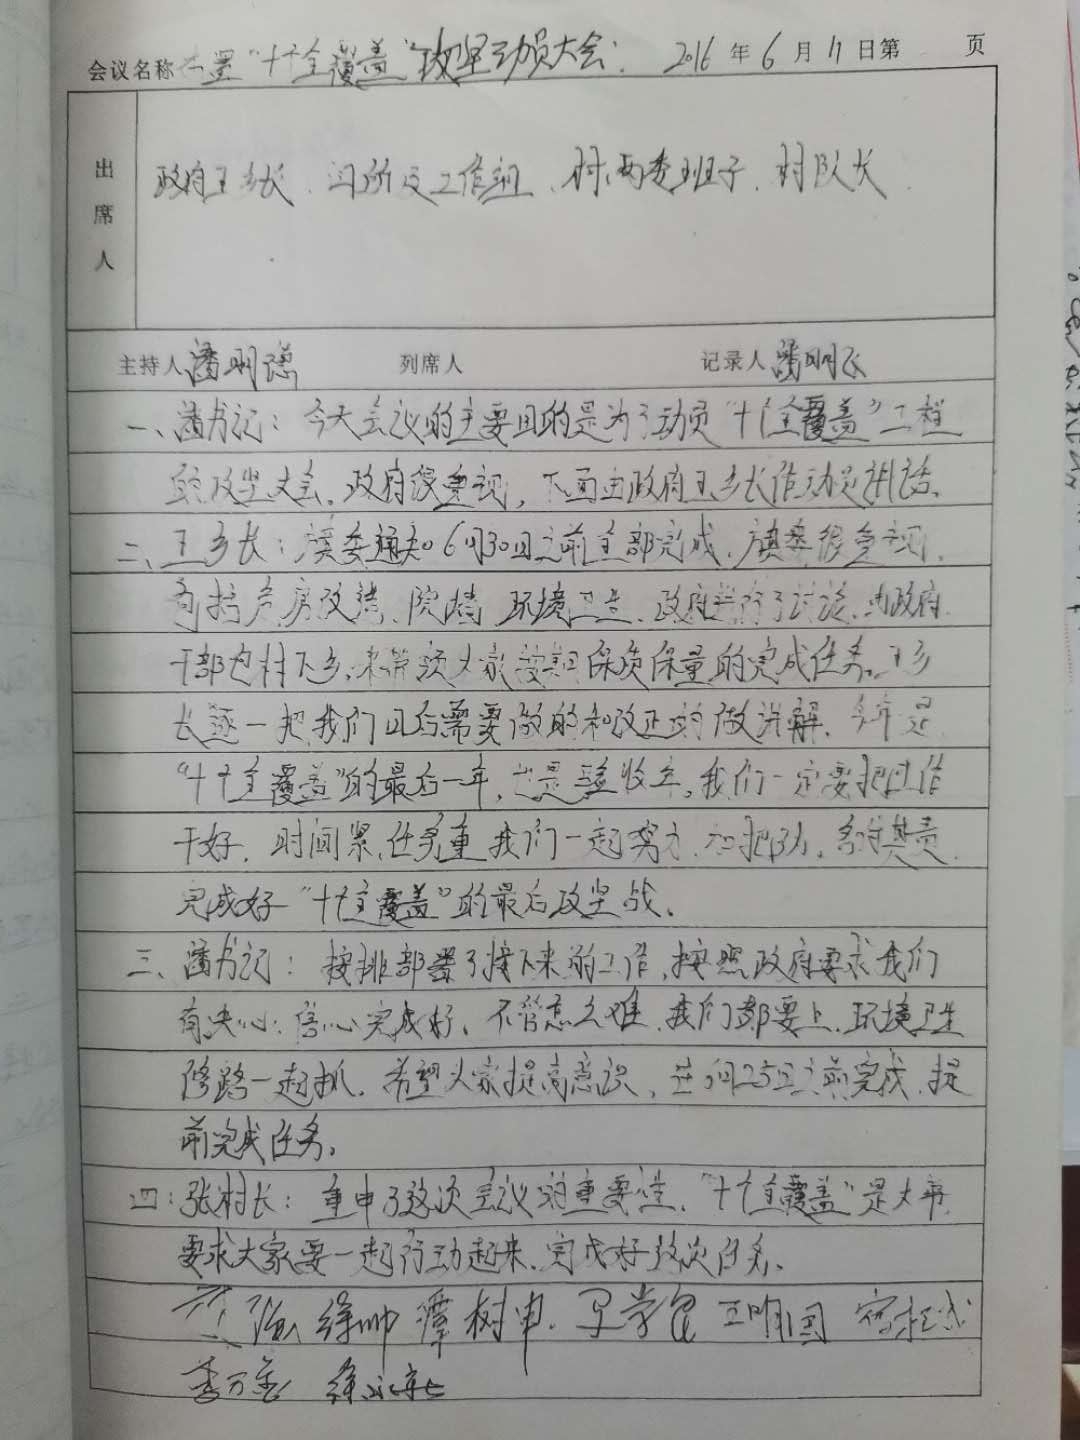 会议名称 "十个全覆盖"攻坚动员大会: 2016年6月11日第 页
出席人
政府王乡长、司所及工作组、村两委班子、村队长
主持人 潘明德 列席人 记录人 潘明飞
一、潘书记:今天会议的主要目的是为了动员"十个全覆盖"工程
的攻坚大会,政府很重视,下面由政府王乡长作动员讲话。
二、王乡长:旗委通知6月30日之前全部完成,旗委很重视,
包括危房改造、院墙、环境卫生、政府进行了讨论、由政府
干部包村下乡,来带领大家按期保质保量的完成任务。王乡
长逐一把我们以后需要做的和改正的做讲解,今年是
"十个全覆盖"的最后一年,也是验收年,我们一定要把工作
干好,时间紧,任务重,我们一起努力,加把劲,各村其责
完成好"十个全覆盖"的最后攻坚战。
三、潘书记:按排部署了接下来的工作,按照政府要求我们
有决心、信心完成好,不管怎么难,我们都要上,环境卫生
修路一起抓,希望大家提高意识,在6月25日之前完成,提
前完成任务。
四:张村长:重申了这次会议的重要性,"十个全覆盖"是大事,
要求大家要一起行动起来,完成好这次任务。
徐帅 潭树申 王明国
李万金 徐永